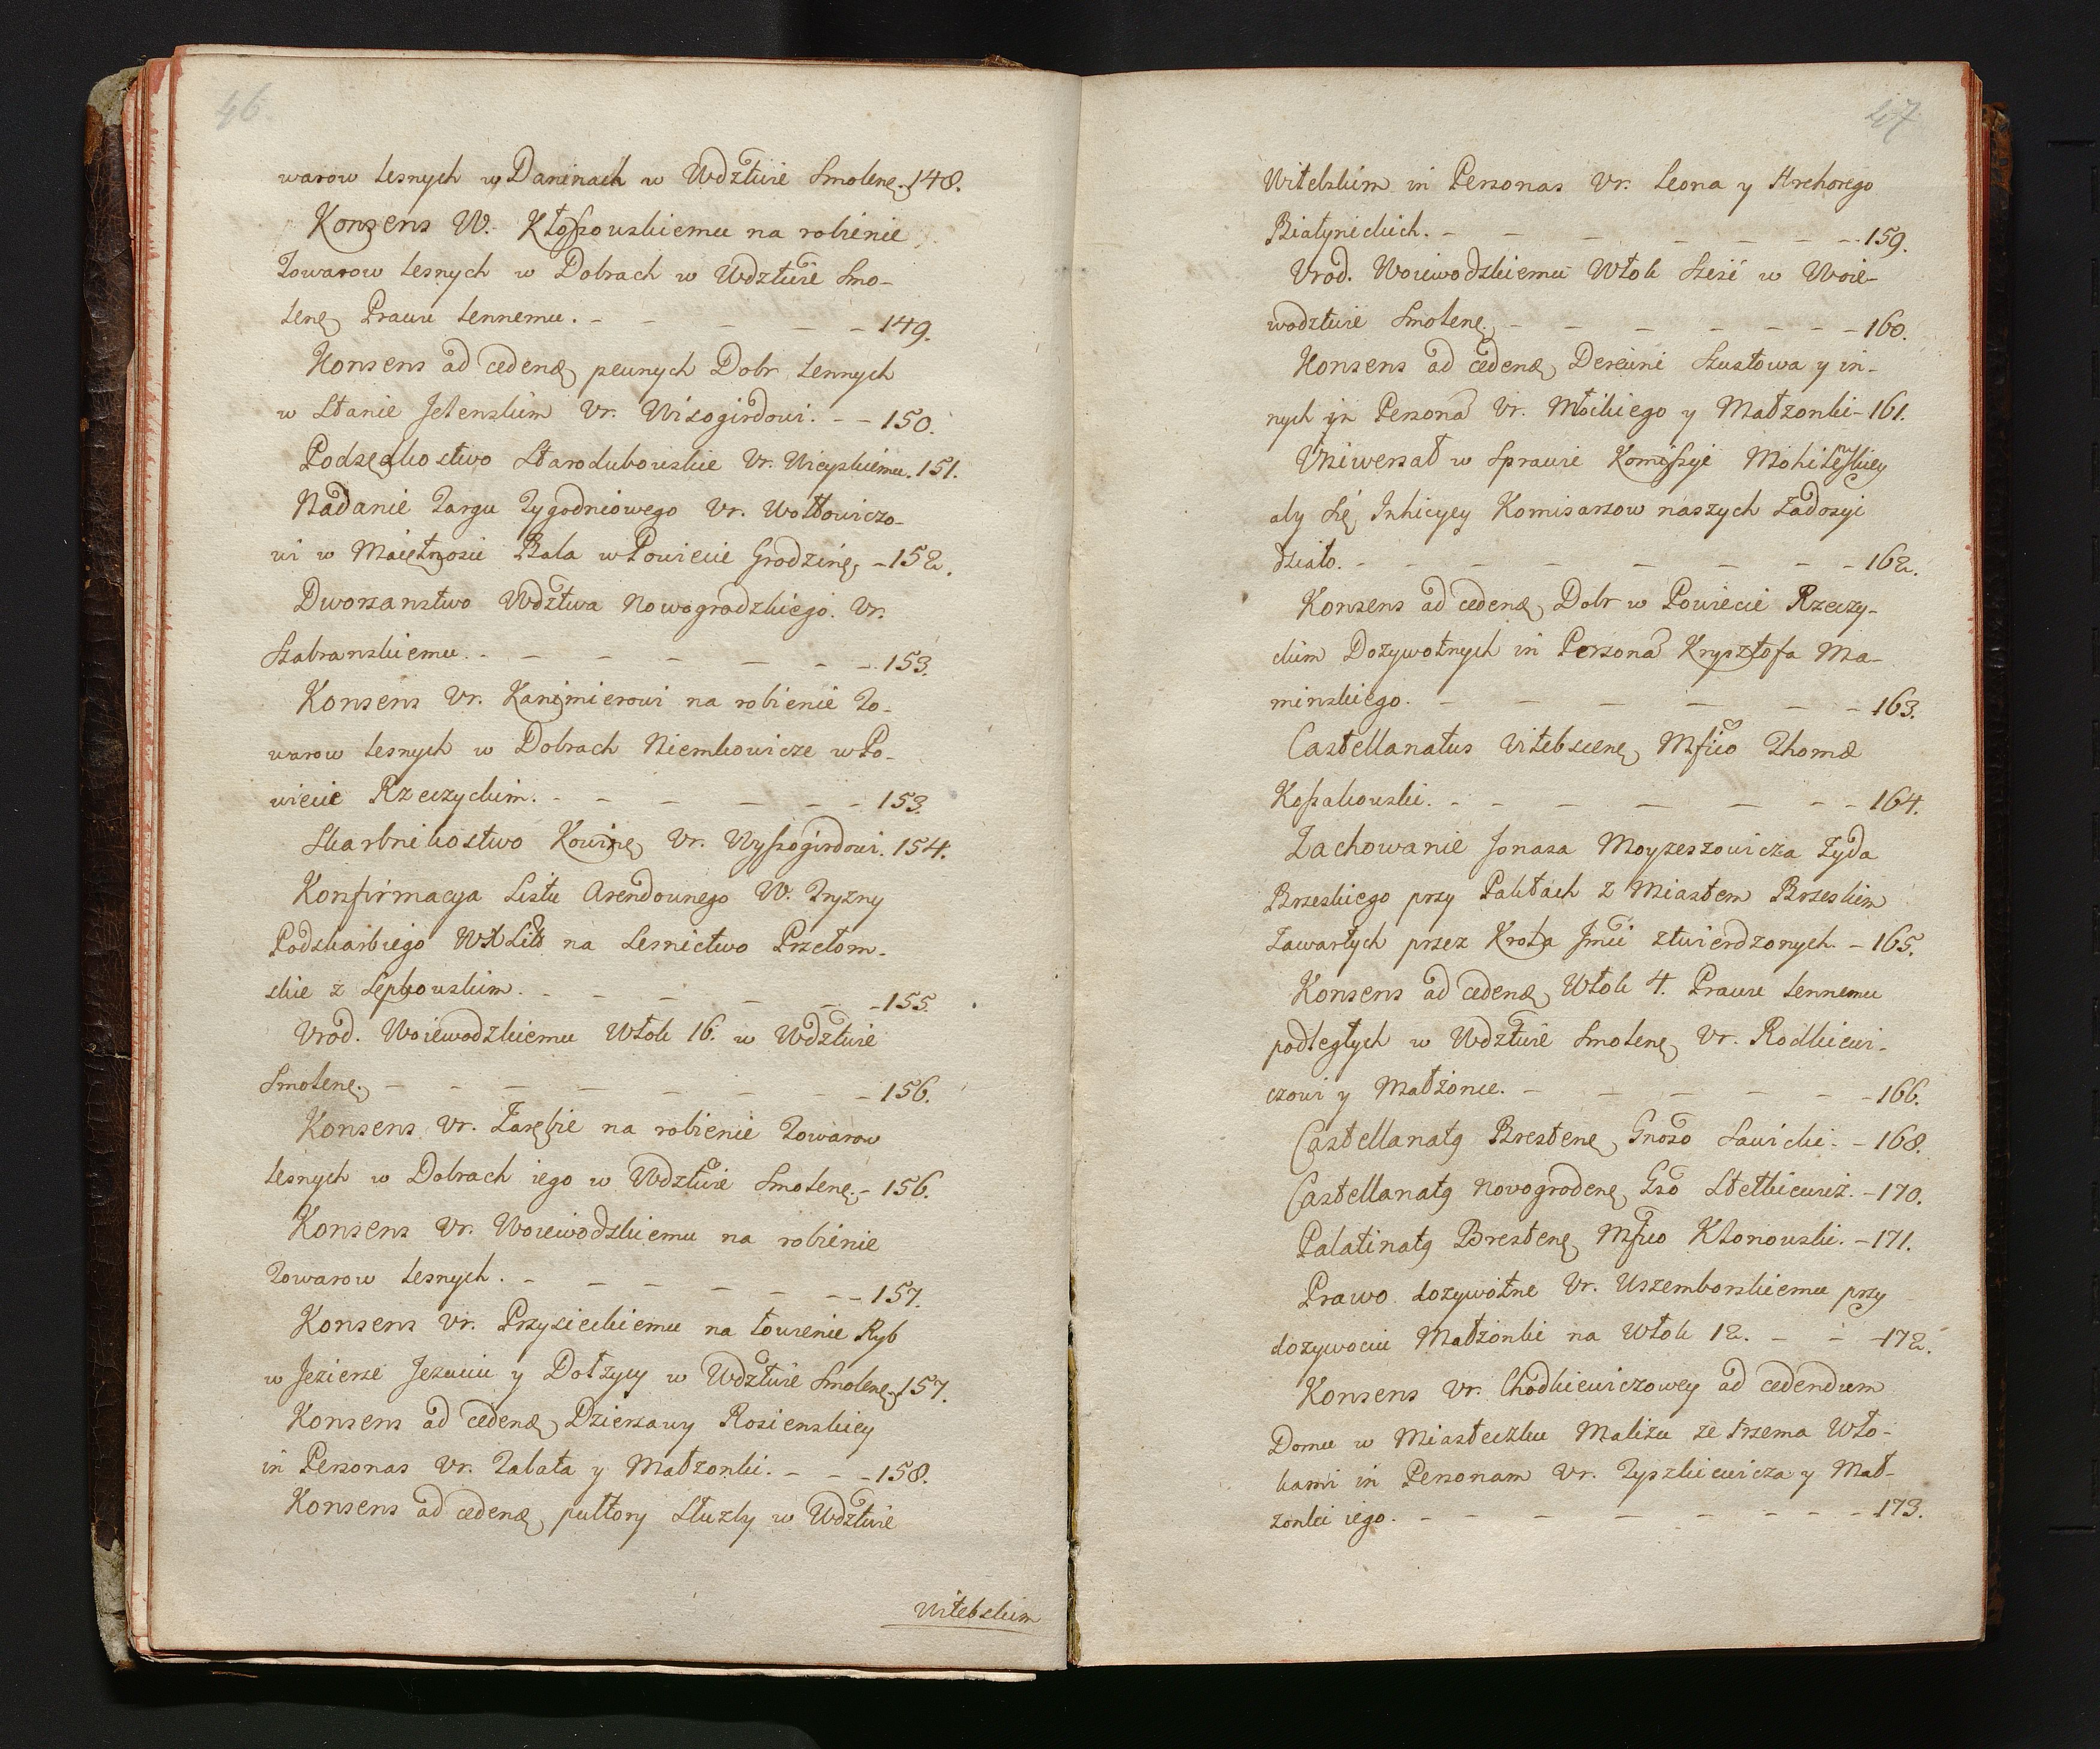 46.
warow Lesnych w Daninach w Wdztwie Smolenę. 148.
Konsens W. Kłossowskiemu na robienie
Towarow Lesnych w Dobrach w Wdztwie Smo-
lenę Prawu Lennemu. - - - - - 149.
Konsens ad cedenđ pewnych Dobr Lennych
w Stanie Jelenskim Vr. Wisogirdowi. - - 150.
Podsęđkostwo Starodubowskie Vr. Wicyskiemu. 151.
Nadanie Targu Tygodniowego Vr. Wołłowiczo-
wi w Maiętnosci Bala w Powiecie Grodzinę - 152.
Dworzanstwo Wdztwa Nowogrodzkiego. Vr.
Szabranskiemu. - - - - - - - 153.
Konsens Vr. Kanimierowi na robienie To-
warow Lesnych w Dobrach Niemkowicze w Po-
wiecie Rzeczyckim. - - - - - - 153.
Skarbnikostwo Kowinę Vr. Wyssogirdowi. 154.
Konfirmacya Listu Arendownego W. Tryzny
Podskarbiego WXLitt na Lesnictwo Przełom-
skie z Lepkowskim. - - - - - - 155.
Vrod. Woiewodzkiemu Włok 16. w Wdztwie
Smolenę. - - - - - - - 156.
Konsens Vr. Zarębie na robienie Towarow
Lesnych w Dobrach iego w Wdztwie Smolenę. - 156.
Konsens Vr. Woiewodzkiemu na robienie
Towarow Lesnych. - - - - - - - 157.
Konsens Vr. Przysieckiemu na łowienie Ryb
w Jezierze Jezawiu y Dołzycy w Wdztwie Smolenę. 157.
Konsens ad cedenđ Dzierzawy Rosienskiey
in Personas Vr. Tabata y Małzonki. - - - 158.
Konsens ad cedenđ pułtory Służby w Wdztwie
Witebskim
47
Witebskim in Personas Vr. Leona y Hrehorego
Białynickich. - - - - - - - 159.
Vrod. Woiewodzkiemu Włok Sześć w Woie-
wodztwie Smolenę. - - - - - - - 160.
Konsens ad cedenđ Derewni Szustowa y in-
nych in Personã Vr. Młoikiego y Małzonki - 161.
Vniwersał w Sprawie Komissyi Mohilewskiey
aby się Inhicyey Komisarzow naszych Zadosyć
działo. - - - - - - - - 162.
Konsens ad cedenđ Dobr w Powiecie Rzeczy-
ckim Dozywotnych in Personã Krysztofa Ma-
minskiego. - - - - - - 163.
Castellanatus Vitebscenę Mfico Thomæ
Kossakowski. - - - - - - - 164.
Zachowanie Jonasa Moyzeszowicza Zyda
Brzeskiego przy Paktach z Miastem Brzeskim
Zawartych przez Krola Jmci ztwierdzonych. - 165.
Konsens ad cedenđ Włok 4. Prawu Lennemu
podległych w Wdztwie Smolenę Vr. Rodkiewi-
czowi y Małżonce. - - - - - - 166.
Castellanatq Brestenę Gnoso Sawicki. - 168.
Castellanatq Novogrodenę Gso Stetkiewicz. - 170.
Palatinatq Brestenę Mfico Kłonowski. - 171.
Prawo dozywotne Vr. Uszemborskiemu przy
dozywociu Małzonki na Włok 12. - - - 172.
Konsens Vr. Chodkiewiczowey ad cedendum
Domu w Miasteczku Malizu ze trzema Wło-
kami in Personam Vr. Tyszkiewicza y Mał-
zonki iego. - - - - - - - 173.